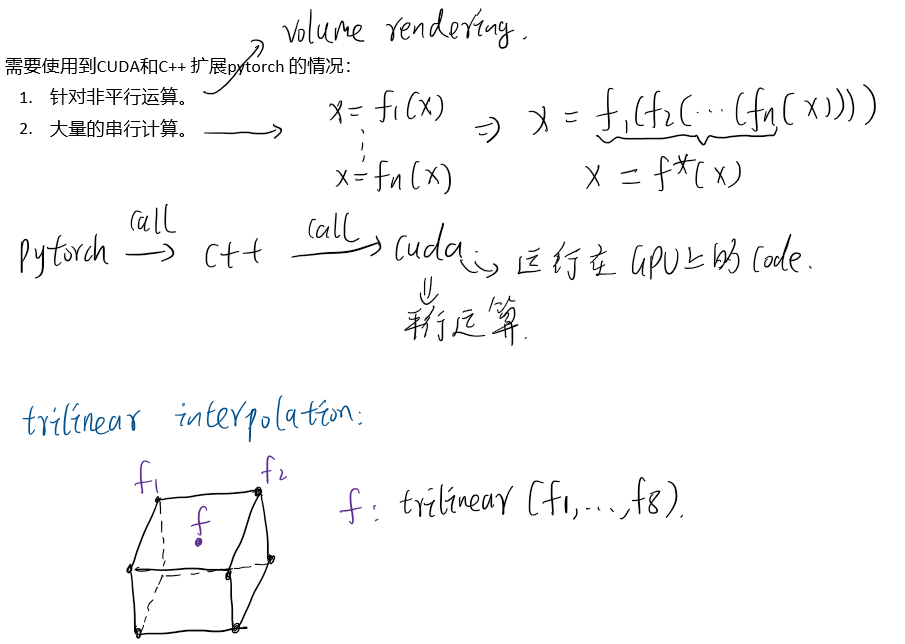 volume rendering.
需要使用到CUDA和C++ 扩展pytorch 的情况：
1. 针对非平行运算。
2. 大量的串行计算。
x = f1(x)
x = fn(x)
⇒ x = f1(f2(…(fn(x))))
x = f*(x)
Pytorch call → C++ call → cuda. → 运行在 GPU上的 Code.
⇓
平行运算.
trilinear interpolation:
f1 f2
f
f: trilinear (f1,…,f8).